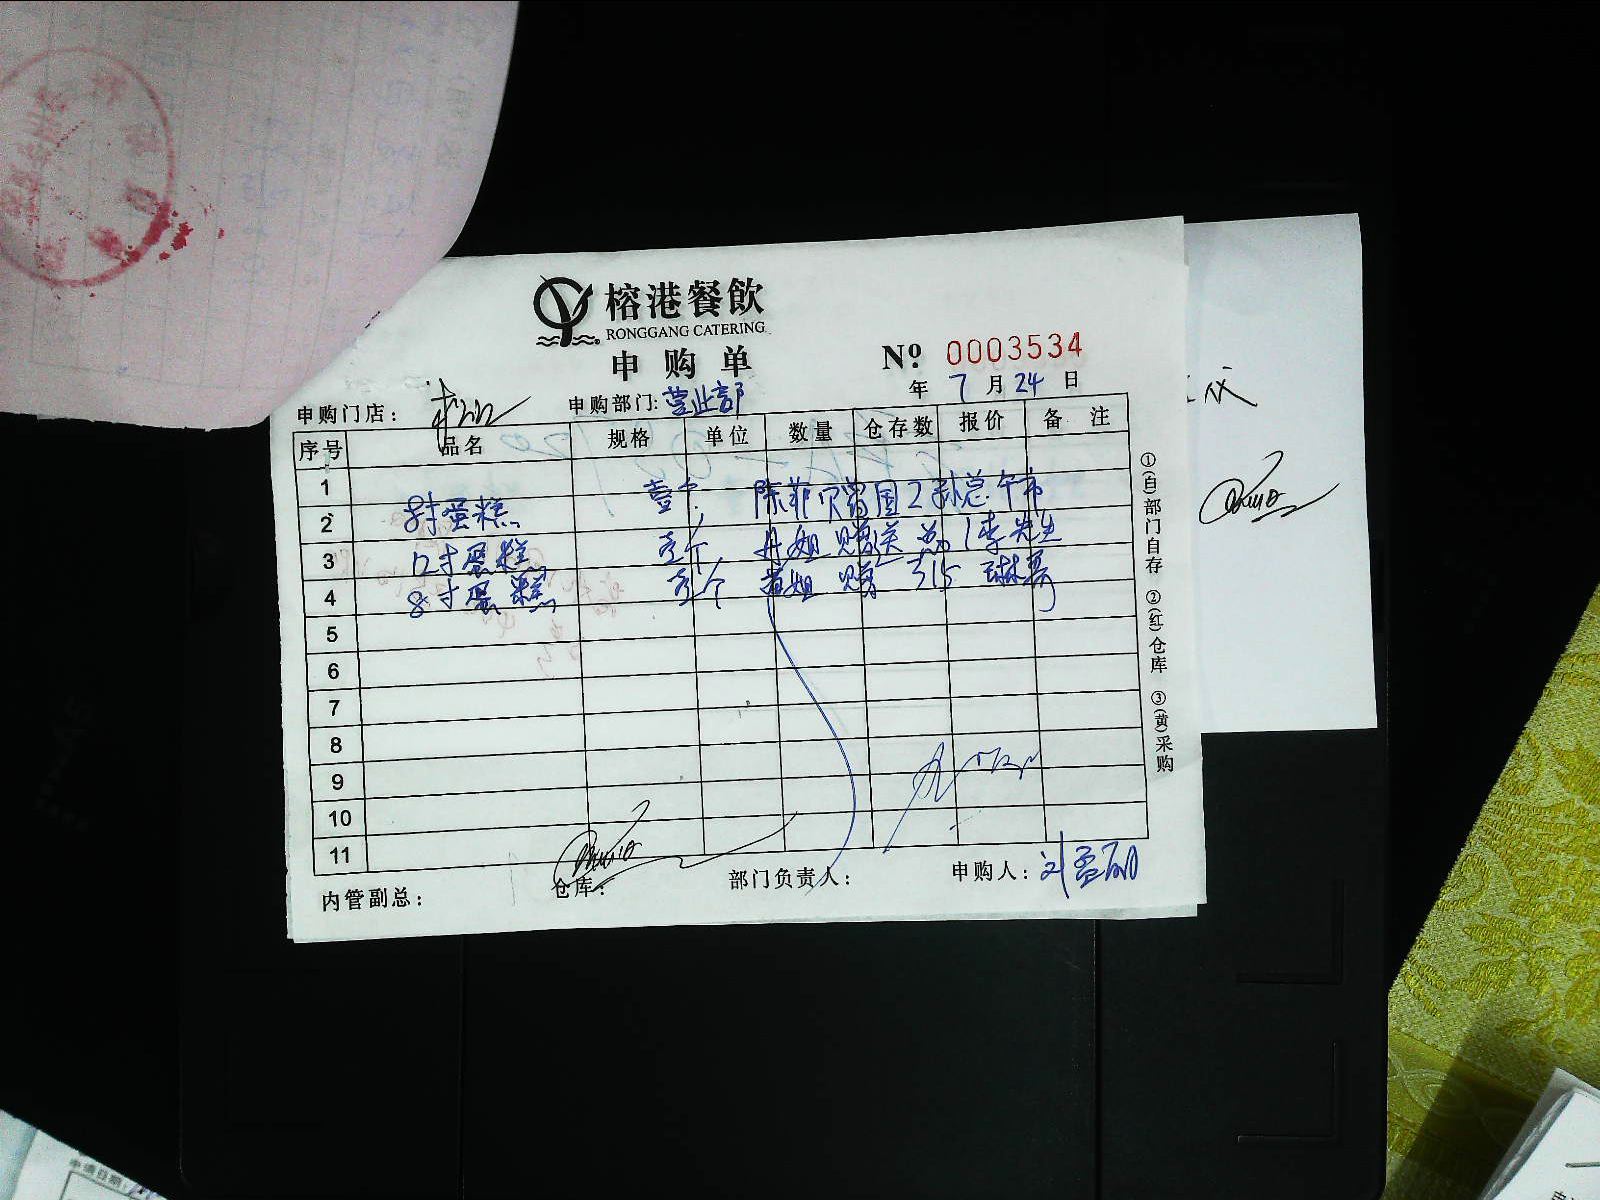 榕港餐飲
RONGGANG CATERING
申购单
№ 0003534
年 7 月 24 日
申购门店：
申购部门: 营业部
序号 品名 规格 单位 数量 仓存数 报价 备 注
1
2 8寸蛋糕 壹个 国2孙总午市
3 12寸蛋糕 壹个 丹姐赠送 1李先生
4 8寸蛋糕 壹个 姐 赠 315 琳哥
5
6
7
8
9
10
11
内管副总：
仓库：
部门负责人：
申购人：刘
①(自)部门自存 ②(红)仓库 ③(黄)采购